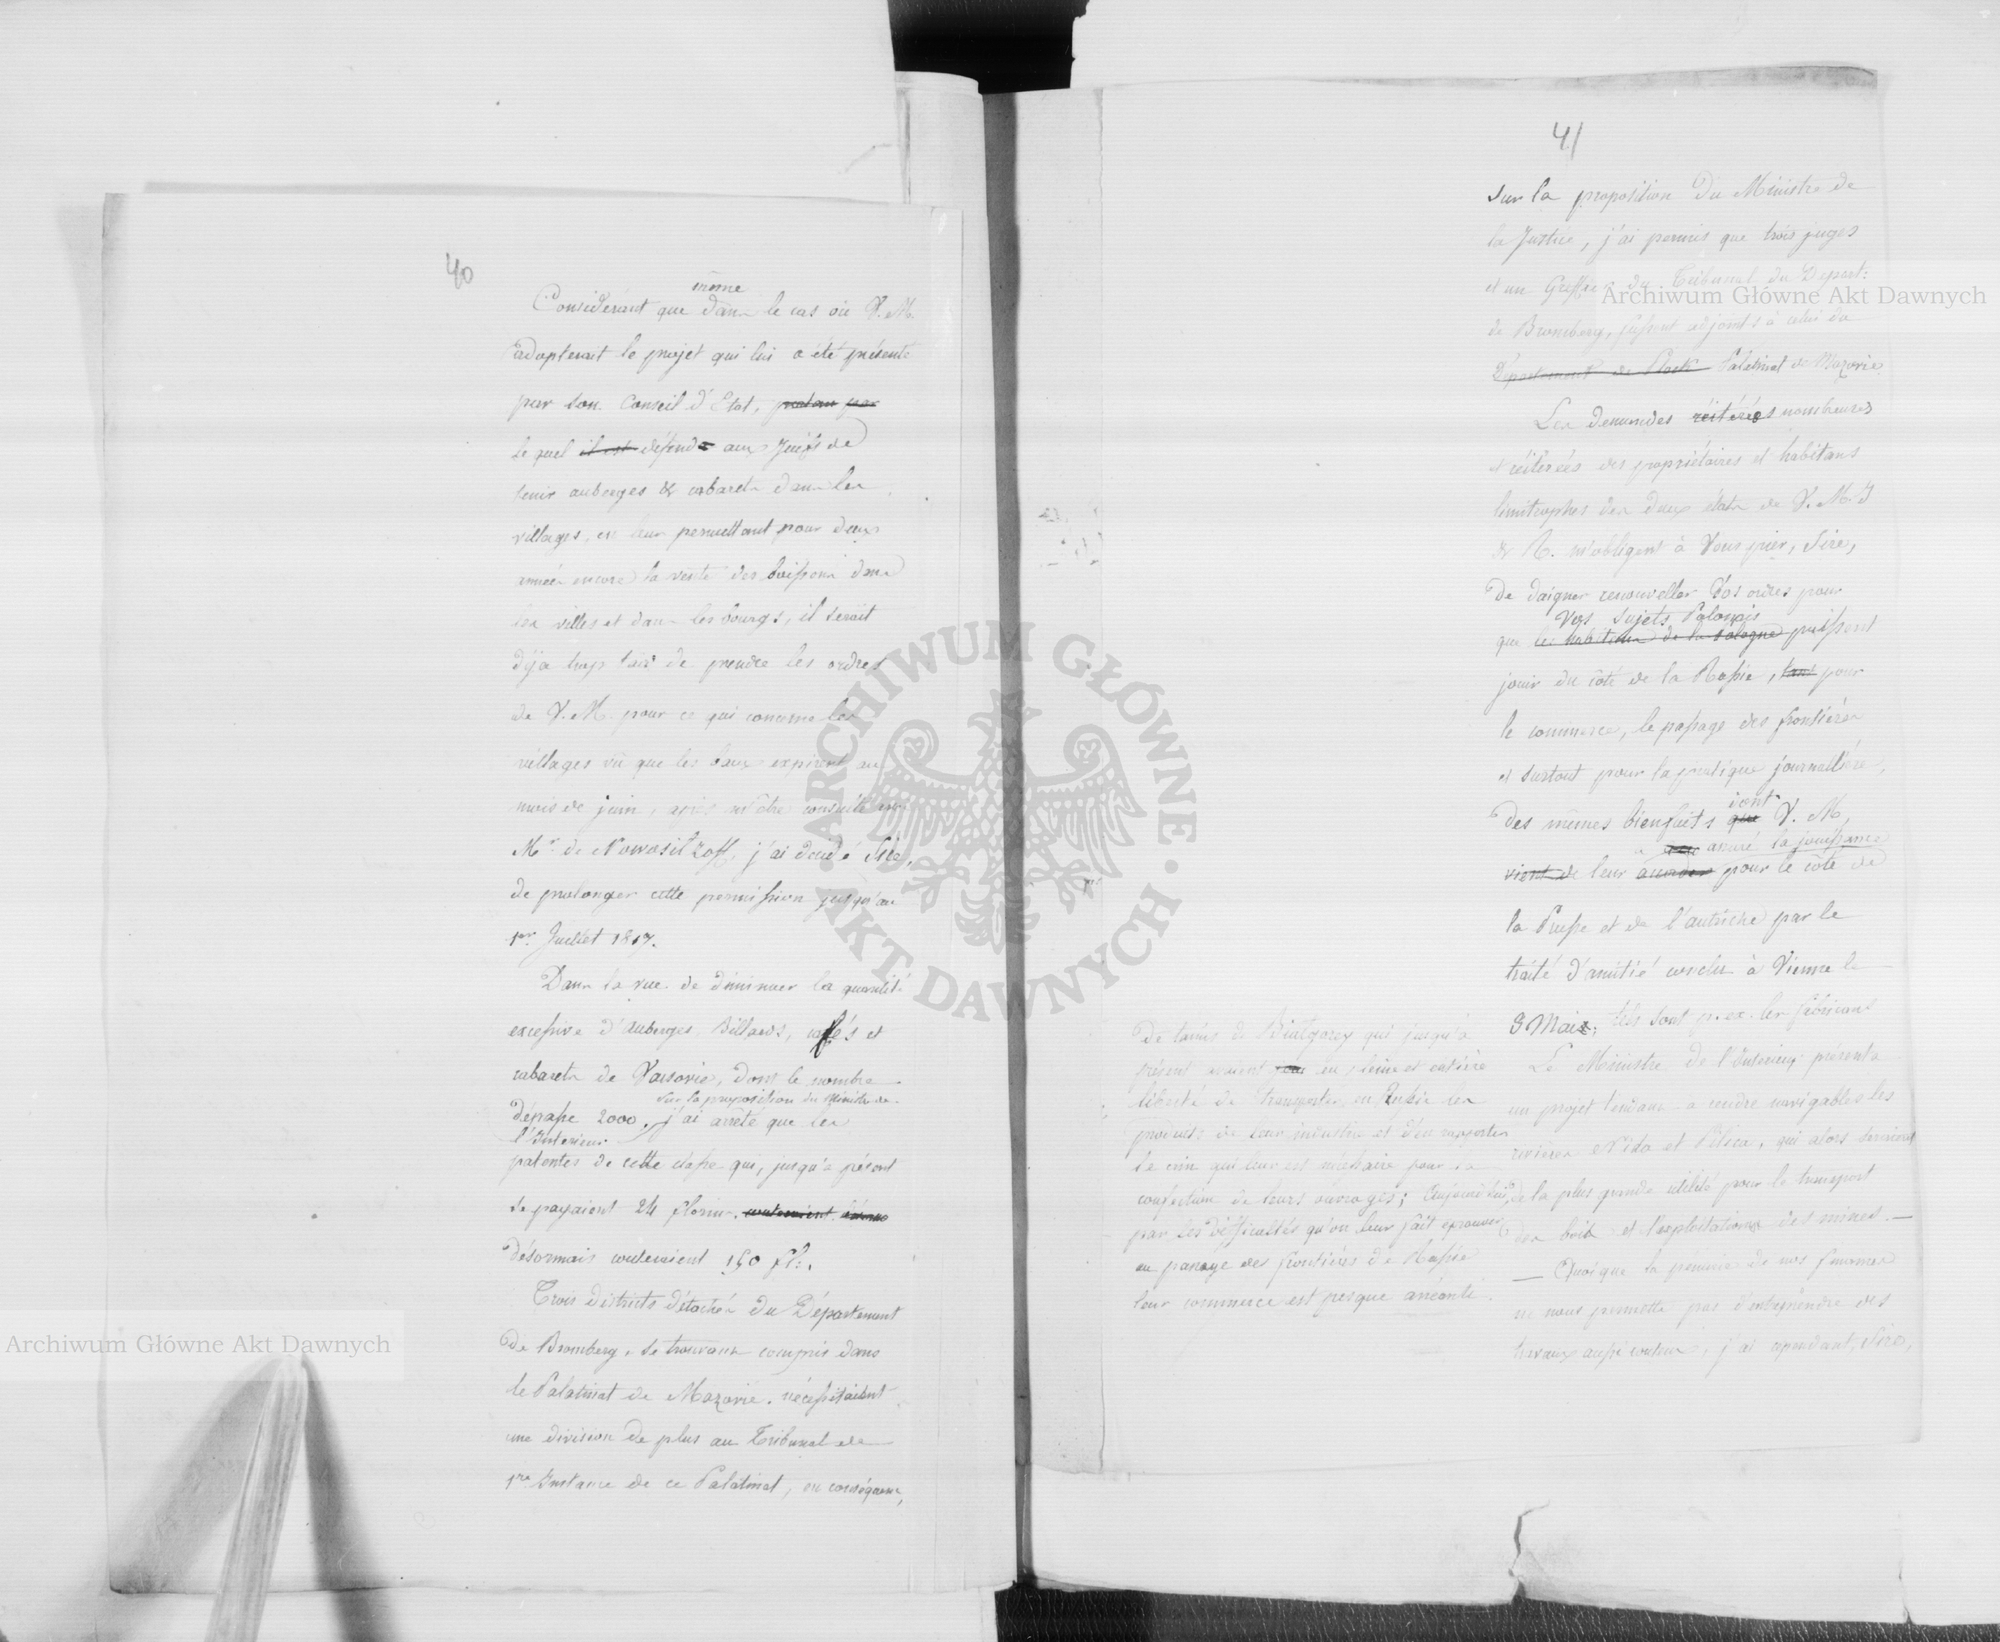 40
même
Considérant que dans le cas où V. M.
adopterait le projet qui lui a été présenté
par son Conseil d'Etat, par
le quel il est défend aux Juifs de
tenir auberges & cabarets dans les
villages, en leur permettant pour deux
années encore la vente des boissons dans
les villes et dans les bourgs, il serait
déja trop tard de prendre les ordres
de V. M. pour ce qui concerne les
villages vû que les baux expirent au
mois de juin, après m'être consulté avec
Mr. de Nowosiltzoff, j'ai décidé Sire,
de prolonger cette permission jusqu'au
1er. Juillet 1817.
Dans la vue de diminuer la quantité
excessive d'auberges, Billards, caffés et
cabarets de Varsovie, dont le nombre
sur la proposition du Ministre de
dépasse 2000, j'ai arrêté que les
l'Interieur
patentes de cette classe qui, jusqu'à présent
se payaient 24 florins, couteraient
désormais couteraient 150 fl:.
Trois districts détachés du Département
de Bromberg, se trouvant compris dans
le Palatinat de Mazovie, nécessitaient
une division de plus au Tribunal de
1re Instance de ce Palatinat, en conséquence,
41
sur la proposition du Ministre de
la Justice, j'ai permis que trois juges
et un Greffier du Tribunal du Depart:
de Bromberg, fussent adjoints à celui du
Département de Plock Palatinat de Mazovie.
Les demandes réitérées nombreuses
et réitérées des propriétaires et habitans
limitrophes des deux états de V. M. I
& R. m'obligent à Vous prier, Sire,
de daigner renouveller Vos ordres pour
Vos Sujets Polonais
que les habitans de la Pologne puissent
jouir du côté de la Russie, tant pour
le commerce, le passage des frontières
et surtout pour la pratique journalière,
dont
des mêmes bienfaits que V. M,
a assuré la jouissance
vient de leur assurer pour le côté de
la Prusse et de l'autriche par le
traité d'amitié conclu à Vienne le
3 Mai; tels sont p. ex. les fabricans
De tamis de Białgorey qui jusqu'à
présent avaient en pleine et entière
liberté de transporter en Russie les
produits de leur industrie et d'en rapporter
le crin qui leur est nécessaire pour la
confection de leurs ouvrages; aujourd'hui,
par les difficultés qu'on leur fait éprouver
au passage des frontières de Russie
leur commerce est presque anéanti.
Le Ministre de l'Interieur présenta
un projet tendant à rendre navigables les
rivières Nida et Pilica, qui alors seraient
de la plus grande utilité pour le transport
des bois et l'exploitation des mines. —
— Quoique la pénurie de nos finances
ne nous permette pas d'entreprendre des
travaux aussi couteux, j'ai cependant, Sire,
Archiwum Główne Akt Dawnych
Archiwum Główne Akt Dawnych
ARCHIWUM GŁÓWNE AKT DAWNYCH